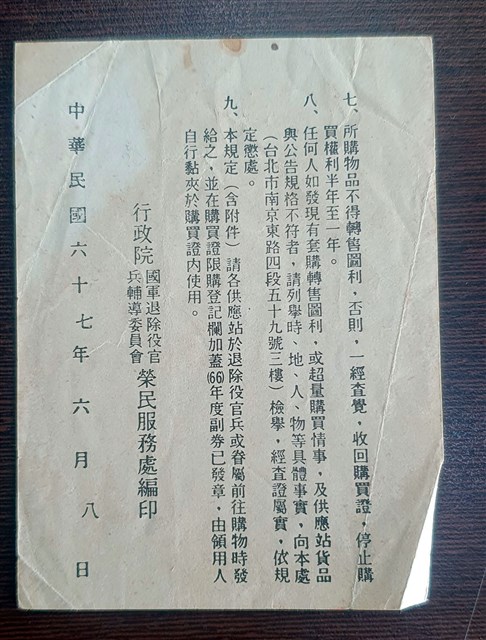 七、所購物品不得轉售圖利，否則，一經查覺，收回購買證，停止購
買權利半年至一年。
八、任何人如發現有套購轉售圖利，或超量購買情事，及供應站貨品
與公告規格不符者，請列舉時、地、人、物等具體事實，向本處
（台北市南京東路四段五十九號三樓）檢舉，經查證屬實，依規
定懲處。
九、本規定（含附件）請各供應站於退除役官兵或眷屬前往購物時發
給之，並在購買證限購登記欄加蓋(66)年度副券已發章，由領用人
自行黏夾於購買證內使用。
行政院國軍退除役官兵輔導委員會榮民服務處編印
中華民國六十七年六月八日